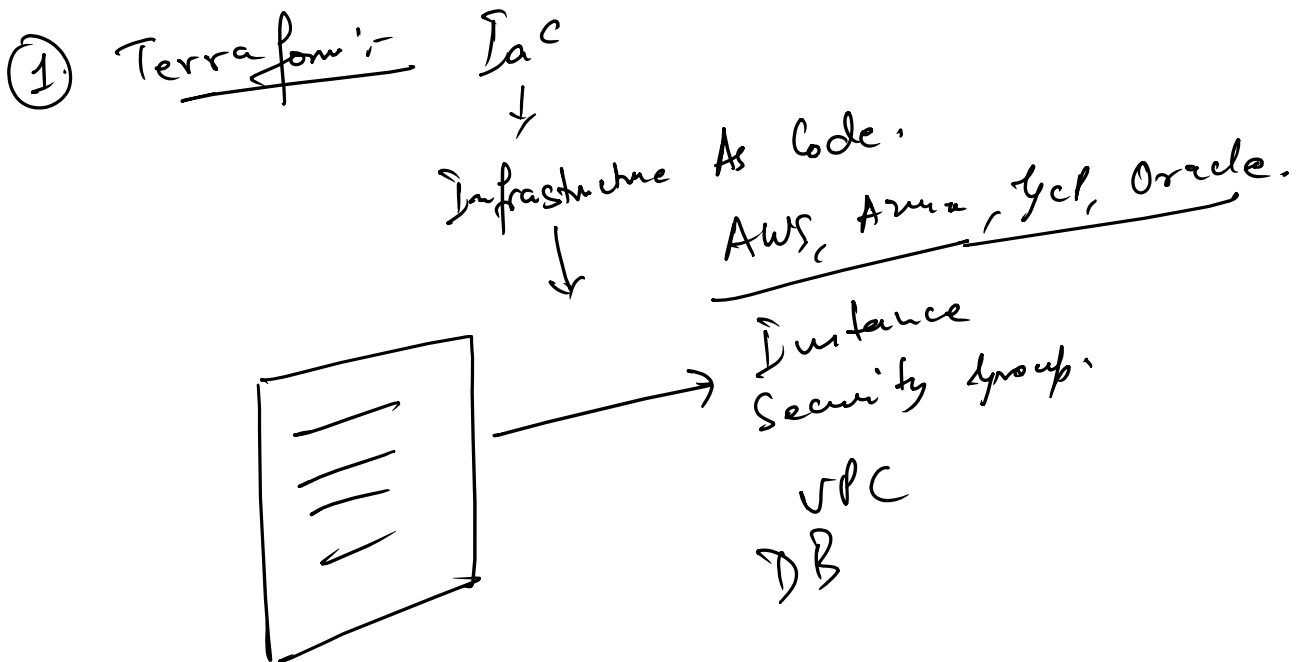 1. Terraform:- IaC
Infrastructure As Code.
AWS, Azure, GCP, Oracle.
Instance
Security Group.
VPC
DB